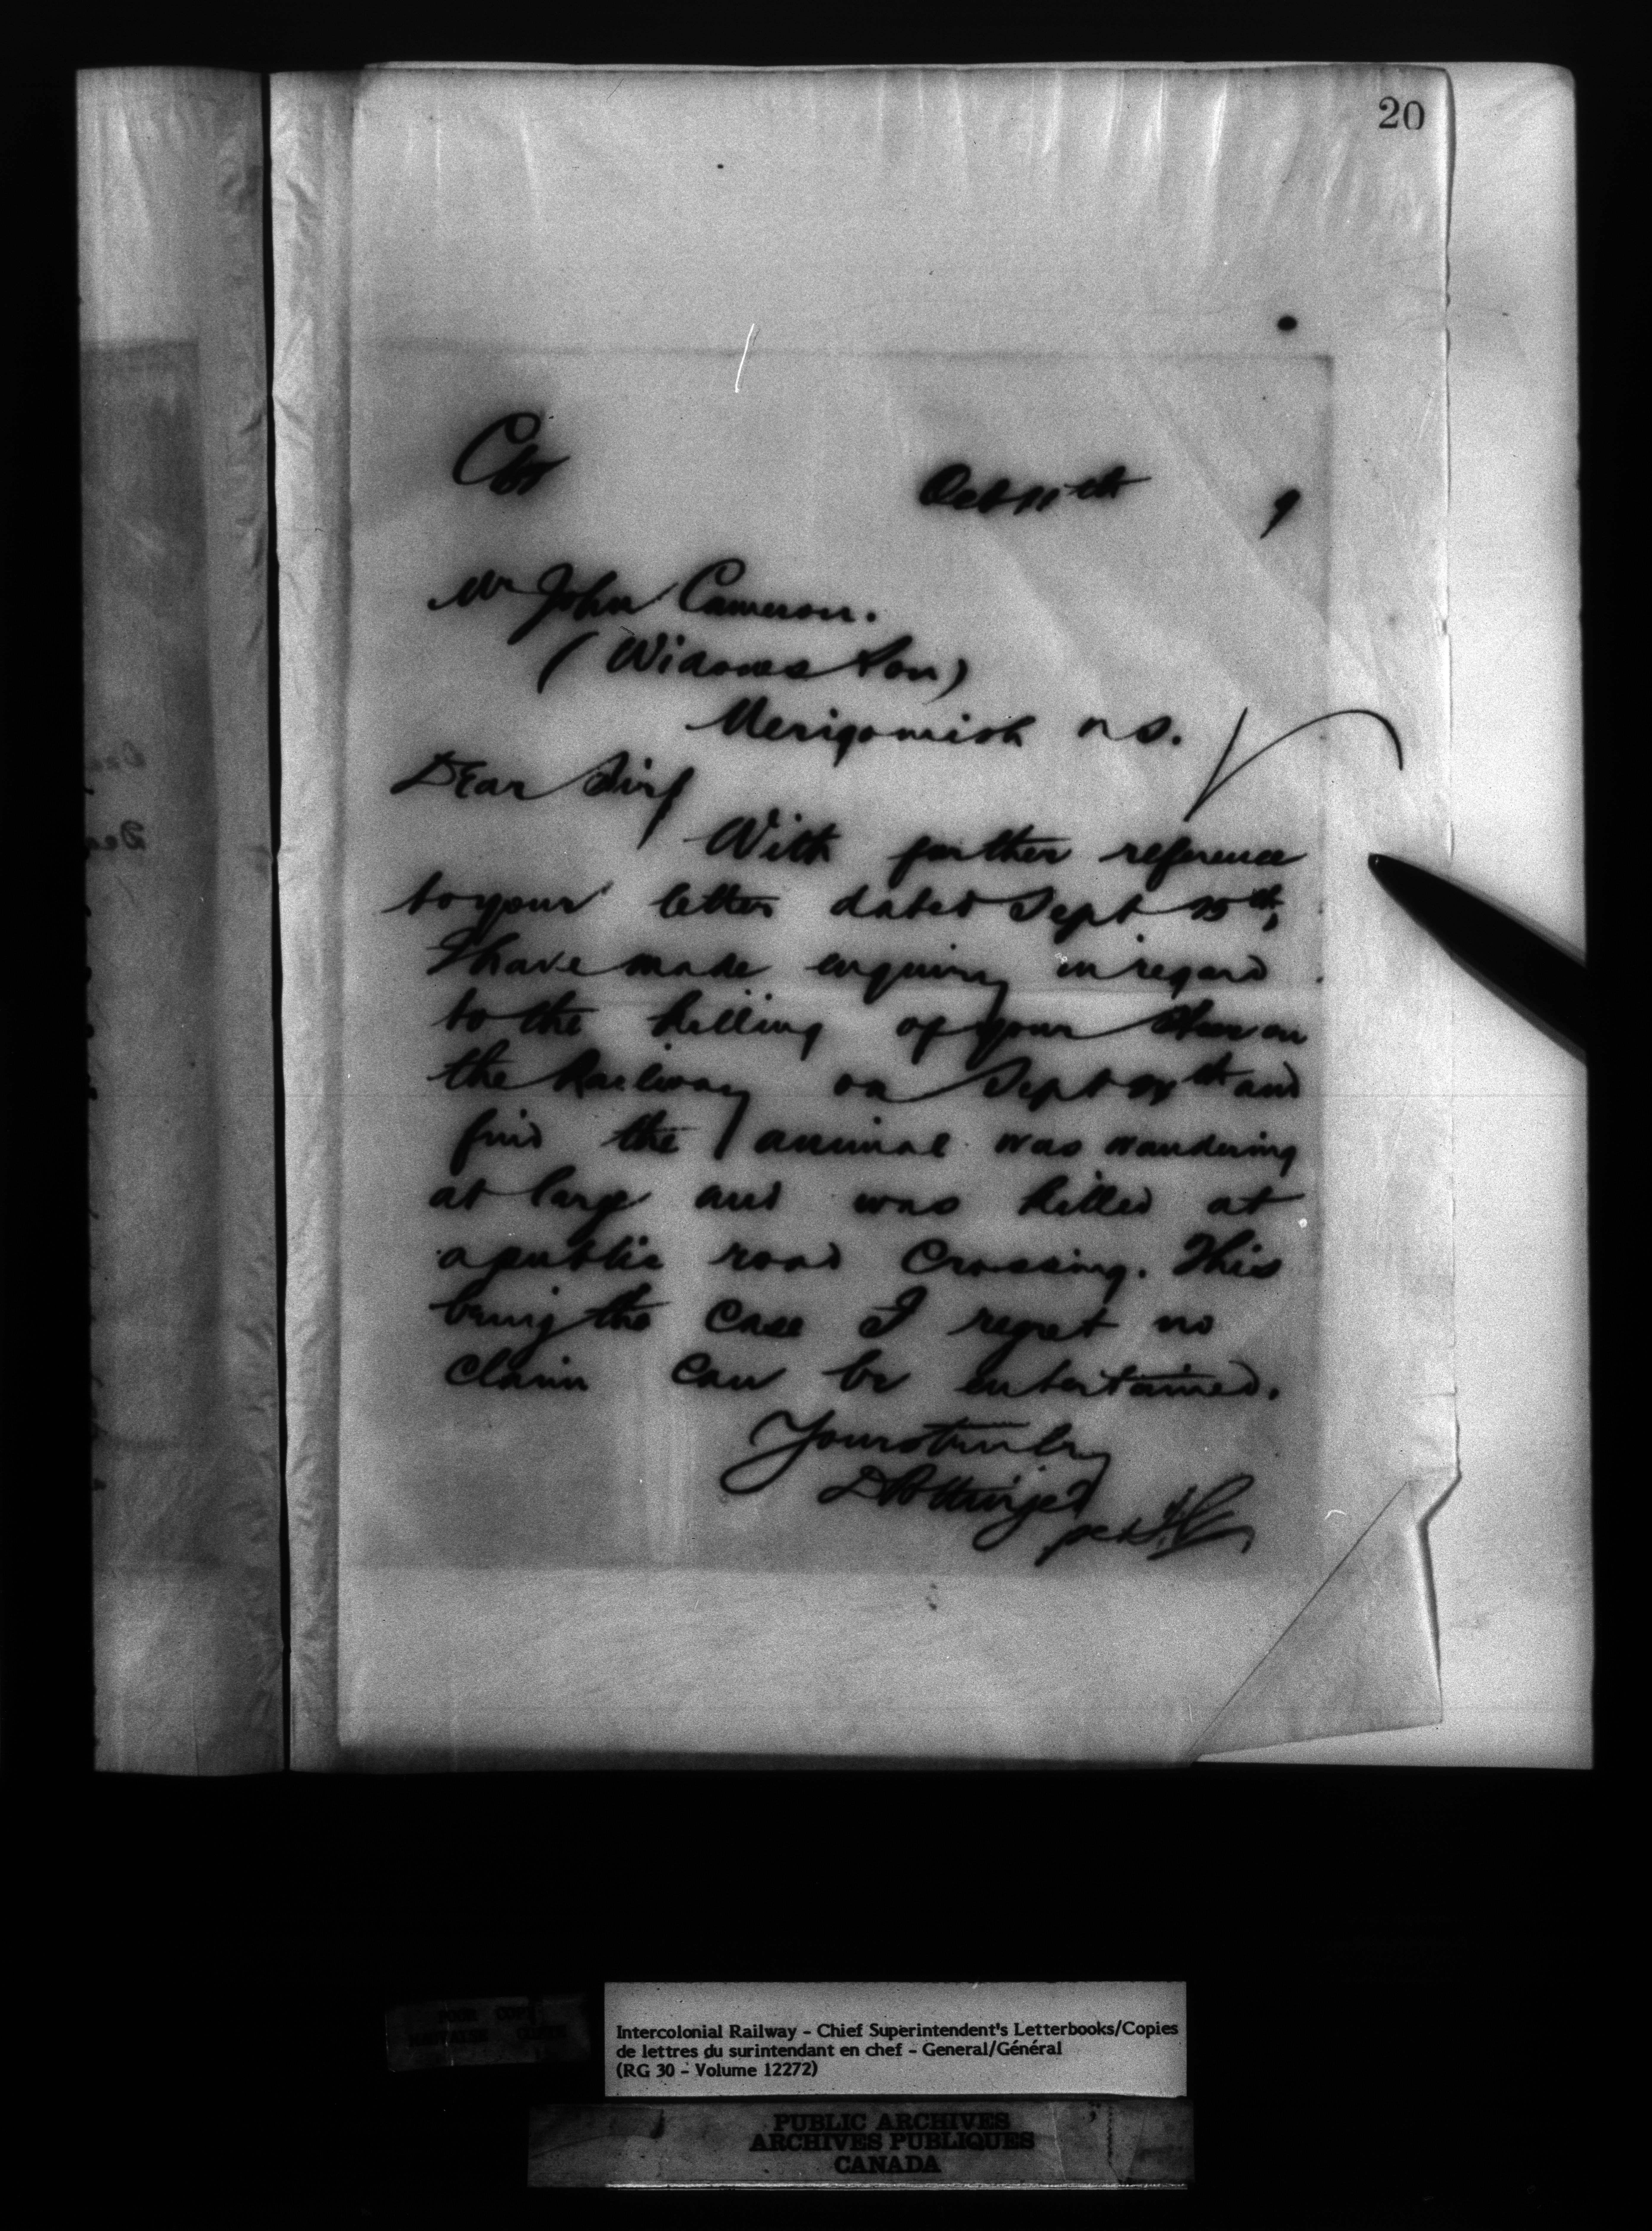 20
Oct 11th 9
Mr John Cameron.
(Widows Son)
Merigomish N S.
Dear Sir
With further reference
to your letter dated Sept 15th,
I have made enquiry in regard
to the killing of your Steer on
the Railway on Sept and
find the animal was wandering
at large and was killed at
a public road Crossing. This
being the case I regret no
claim can be entertained.
Yours truly
D Pottinger
per
Intercolonial Railway - Chief Superintendent's Letterbooks/Copies
de lettres du surintendant en chef - General/Général
(RG 30 - Volume 12272)
PUBLIC ARCHIVES
ARCHIVES PUBLIQUES
CANADA